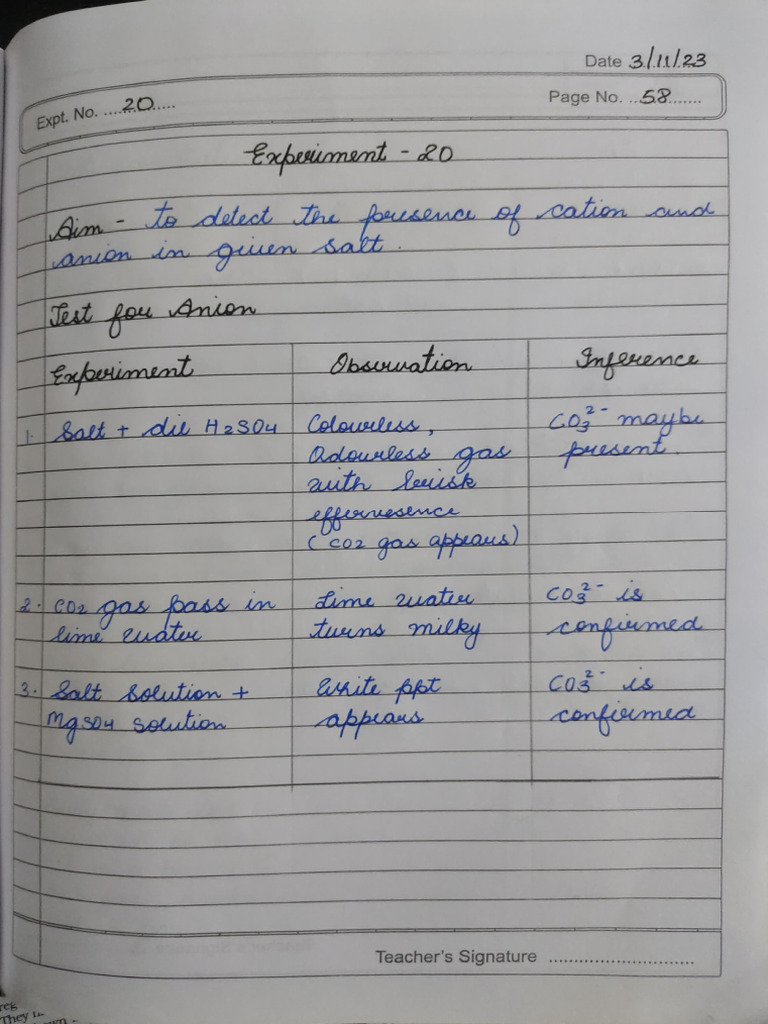 Date 3/11/23
Expt. No. ....20..... Page No. ..58.......
Experiment - 20
Aim - to detect the presence of cation and
anion in given salt.
Test for Anion
Experiment Observation Inference
1. Salt + dil H2SO4 Colourless, CO3 2- maybe
Odourless gas present.
with brisk
effervesence
(CO2 gas appears)
2. CO2 gas pass in Lime water CO3 2- is
lime water turns milky confirmed
3. Salt solution + White ppt CO3 2- is
MgSO4 solution appears confirmed
Teacher's Signature ............................
They